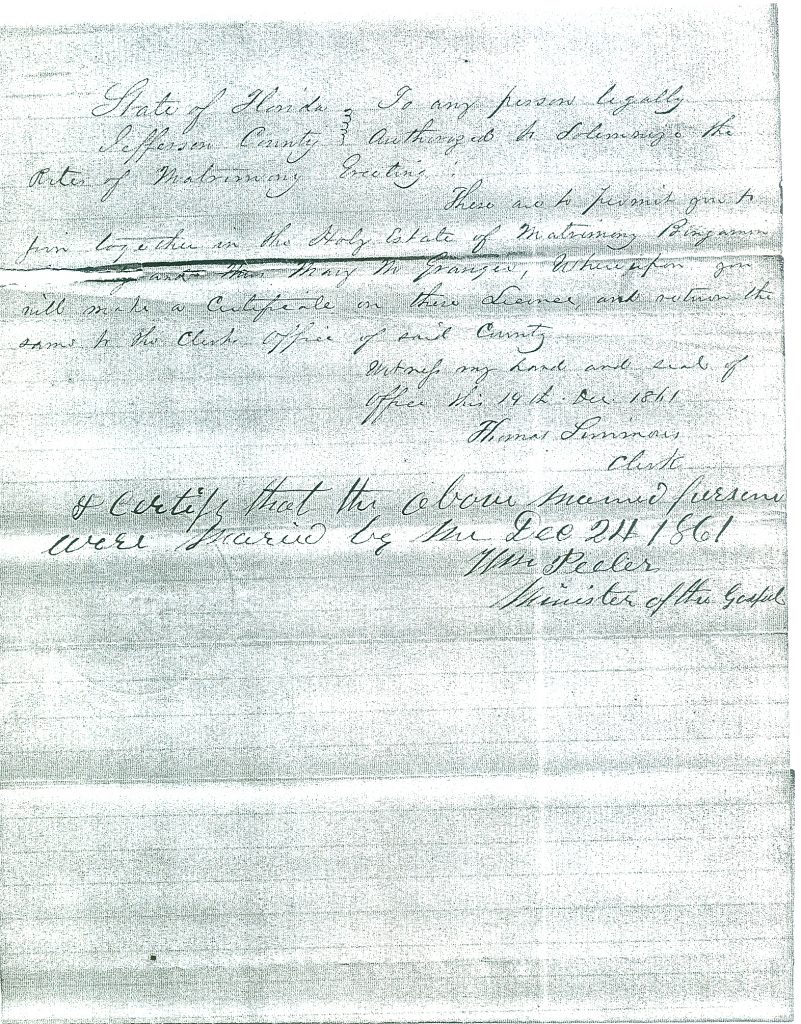 State of Florida } To any person legally
Jefferson County } Authorized to Solemnize the
Rites of Matrimony Greeting.
These are to permit you to
join together in the Holy Estate of Matrimony Bengamin
and Miss Mary M Granger, Whereupon you
will make a Certificate on these License, and return the
same to the Clerks Office of said County
Witness my hand and seal of
Office this 19th Dec. 1861
Thomas Simmons
Clerk
I Certify that the above named persons
were maried by me Dec 24 1861
Wm Peeler
Minister of the Gospel